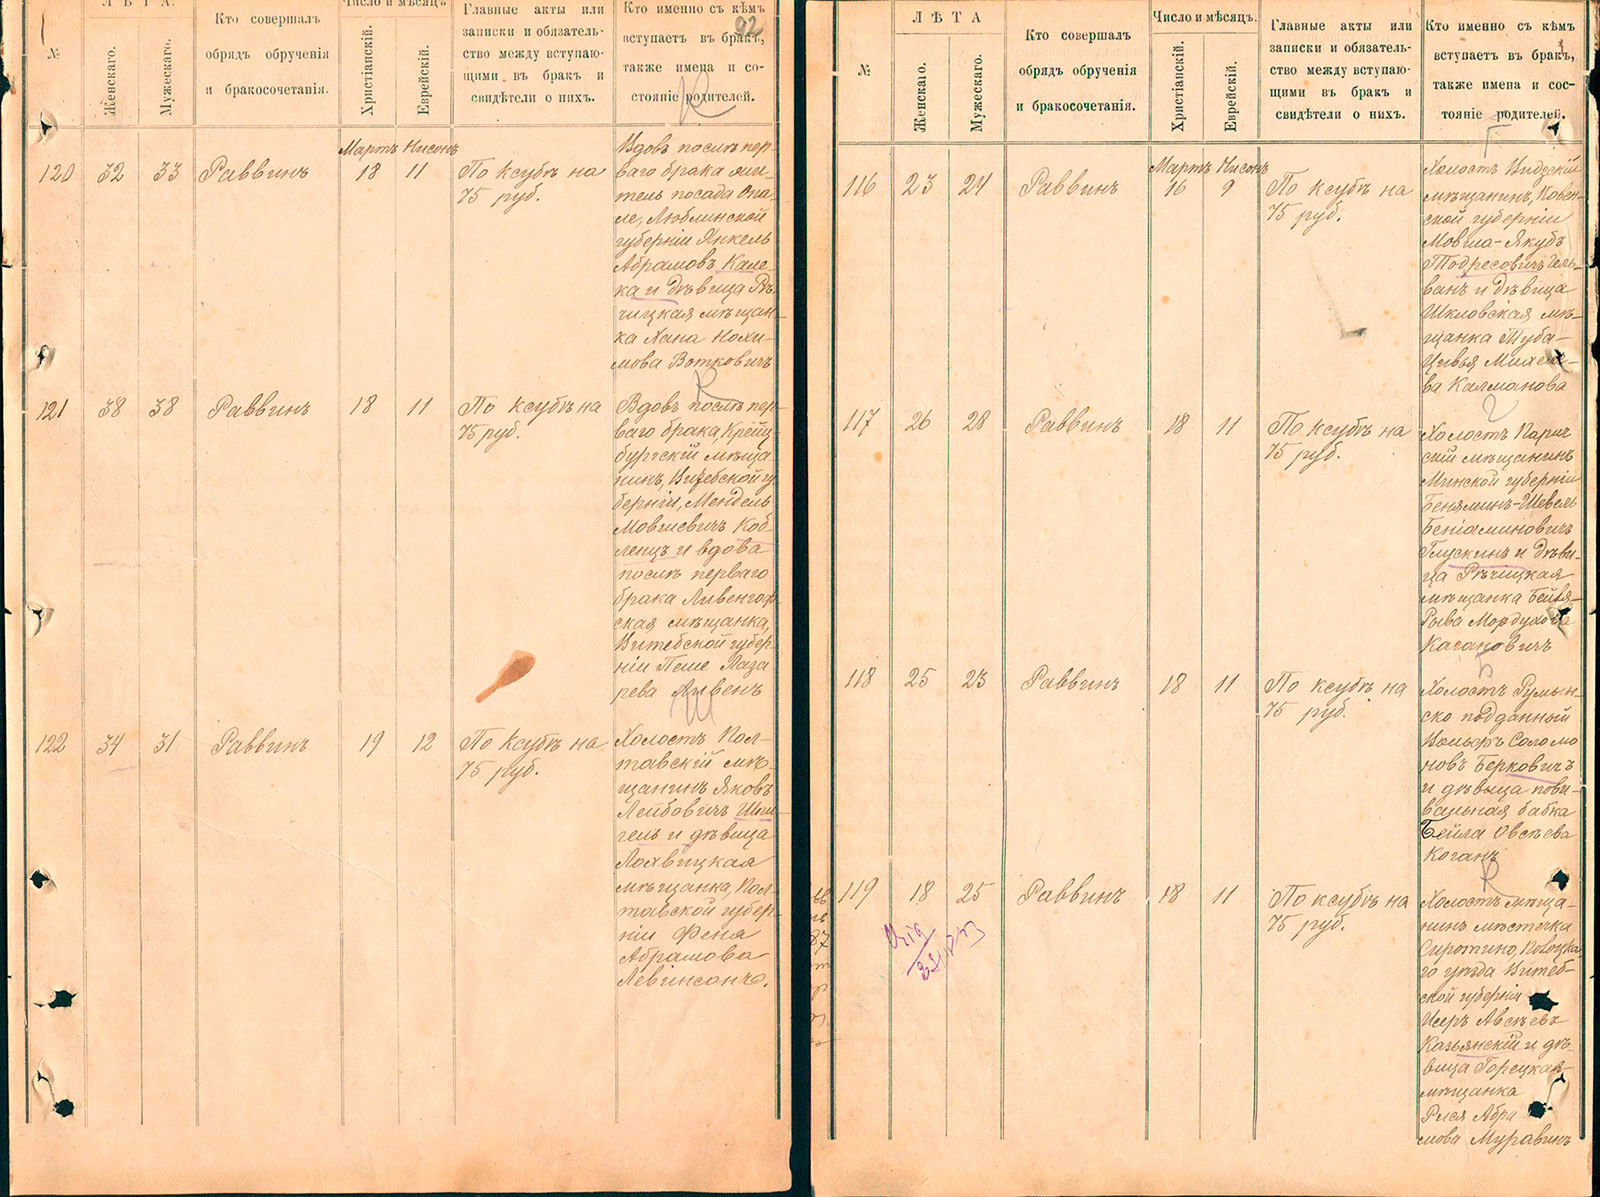 ЛѢТА.
Число и мѣсяцъ
№
Женскаго.
Мужескаго.
Кто совершалъ
обрядъ обрученія
и бракосочетанія.
Христіанскій.
Еврейскій.
Главные акты или
записки и обязатель-
ство между вступаю-
щими въ бракъ и
свидѣтели о нихъ.
Кто именно съ кѣмъ
92
вступаетъ въ бракъ,
также имена и со-
стояніе родителей.
К
Мартъ Нисонъ
120 32 33 Раввинъ 18 11
По ксубѣ на
75 руб.
Вдовъ послѣ пер-
ваго брака жи-
тель посада Опа-
ле, Люблинской
губерніи Янкель
Абрамовъ Кале-
ка и дѣвица Рѣ-
чицкая мѣщан-
ка Хана Нохи-
мова Воткевичъ
К
121 38 38 Раввинъ 18 11
По ксубѣ на
75 руб.
Вдовъ послѣ пер-
ваго брака, Крейц-
бургскій мѣща-
нинъ, Витебской гу
берніи, Мендель
Мовшевичъ Коб-
ленцъ и вдова
послѣ перваго
брака Ливенгоф-
ская мѣщанка,
Витебской губер-
ніи Пеше Лаза
рева Ливенъ
Ш
122 34 31 Раввинъ 19 12
По ксубѣ на
75 руб.
Холостъ Пол-
тавскій мѣ-
щанинъ Яковъ
Лейбовичъ Шпи-
гель и дѣвица
Лохвицкая
мѣщанка, Пол-
тавской губер-
ніи Феня
Абрамова
Левинсонъ.
ЛѢТА
Число и мѣсяцъ.
№
Женскаго.
Мужескаго.
Кто совершалъ
обрядъ обрученія
и бракосочетанія.
Христіанскій.
Еврейскій.
Главные акты или
записки и обязатель-
ство между вступаю-
щими въ бракъ и
свидѣтели о нихъ.
Кто именно съ кѣмъ
вступаетъ въ бракъ,
также имена и сос-
тояніе родителей.
Г
Мартъ Нисонъ
116 23 24 Раввинъ 16 9
По ксубѣ на
75 руб.
Холостъ Видзскій
мѣщанинъ, Ковен-
ской губерніи
Мовша-Якубъ
Тодресовичъ Гель-
ванъ и дѣвица
Шкловская мѣ-
щанка Туба-
Цивья Михеле-
ва Калманова
Г
117 26 28 Раввинъ 18 11
По ксубѣ на
75 руб.
Холостъ Парич
скій мѣщанинъ
Минской губерніи
Беняминъ-Шевель
Беніаминовичъ
Глускинъ и дѣви-
ца Рѣчицкая
мѣщанка Бейля-
Рыва Мордухова
Касановичъ
Б
118 25 23 Раввинъ 18 11
По ксубѣ на
75 руб.
Холостъ Румын-
ско подданный
Вольфъ Соломо
новъ Берковичъ
и дѣвица пови-
вальная бабка
Бейла Овсѣева
Коганъ
К
119 18 25 Раввинъ 18 11
По ксубѣ на
75 руб.
Холостъ мѣща-
нинъ мѣстечка
Сиротино, Полоцка
го уѣзда Витеб-
ской губерніи
Исеръ Авсѣевъ
Казьянскій и дѣ-
вица Горецкая
мѣщанка
Рися Абра
мова Муравинъ